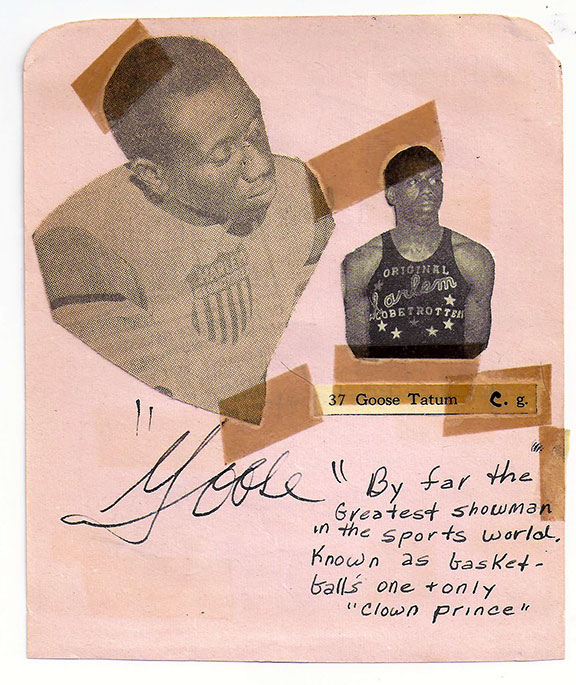 ORIGINAL
Harlem
GLOBETROTTERS
37 Goose Tatum C. g.
"Goose"
By far the
Greatest showman
in the sports world.
Known as basket-
ball's one + only
"clown prince"